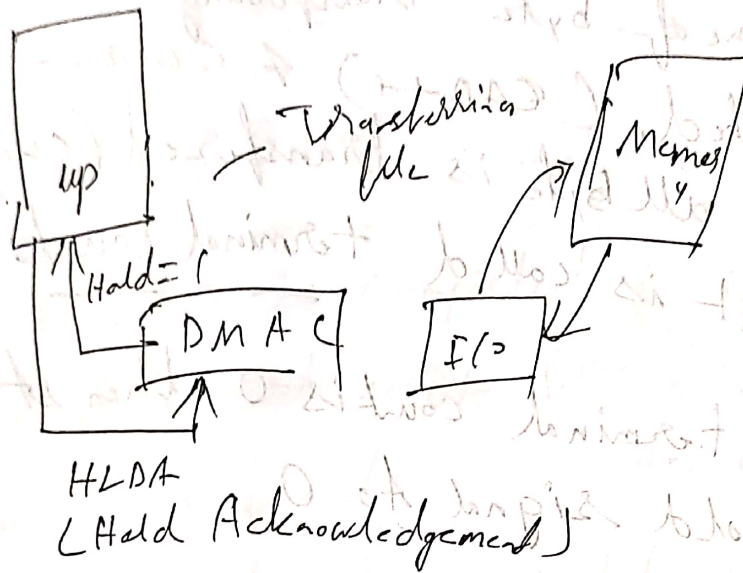 Transferring
file
Memory
up
Hold = 1
DMAC
I/O
HLDA
(Hold Acknowledgement)